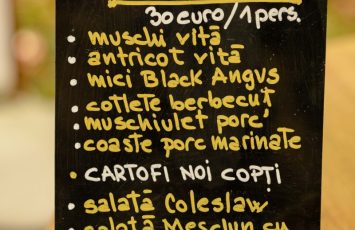 30 euro/1 pers.
• muschi vită
• antricot vită
• mici Black Angus
• cotlete berbecuț
• muschiulet porc
• coaste porc marinate
• CARTOFI NOI COPȚI
• salată Coleslaw
• salată Mesclun cu